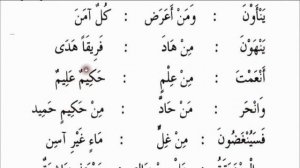 يَنْأَوْنَ : وَمَنْ أَعْرَضَ : كُلٌّ آمَنَ
يَنْهَوْنَ : مِنْ هَادٍ : فَرِيقًا هَدَى
أَنْعَمْتَ : مِنْ عِلْمٍ : حَكِيمٌ عَلِيمٌ
وَانْحَرْ : مَنْ حَادَّ : مِنْ حَكِيمٍ حَمِيدٍ
فَسَيُنْغِضُونَ : مِنْ غِلٍّ : مَاءٍ غَيْرِ آسِنٍ